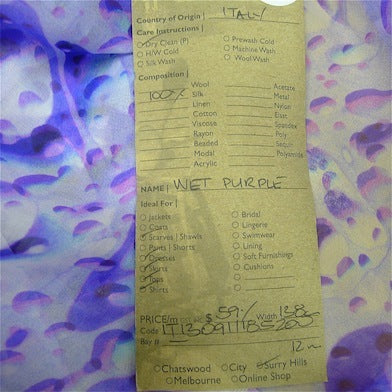 Country of Origin | ITALY
Care Instructions |
Dry Clean (P) Prewash Cold
H/W Cold Machine Wash
Silk Wash Wool Wash
Composition |
Wool Acetate
100% Silk Metal
Linen Nylon
Cotton Elast
Viscose Spandex
Rayon Poly
Beaded Sequin
Modal Polyamide
Acrylic
NAME | WET PURPLE
Ideal For |
Jackets Bridal
Coats Lingerie
Scarves | Shawls Swimwear
Pants | Shorts Lining
Dresses Soft Furnishings
Skirts Cushions
Tops
Shirts
PRICE/m $ 59/- Width 138
Code
Bay #
12m
Chatswood City Surry Hills
Melbourne Online Shop